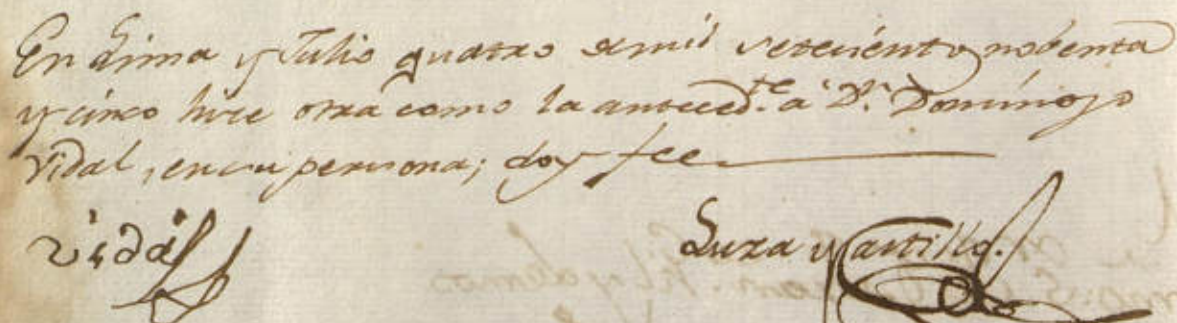 En Lima y Julio quatro de mil setecientos nobenta
y cinco hice otra como la anteced.te a D.n Domingo
Vidal, en su persona; doy fee
Vidal
Luza y Castillo.